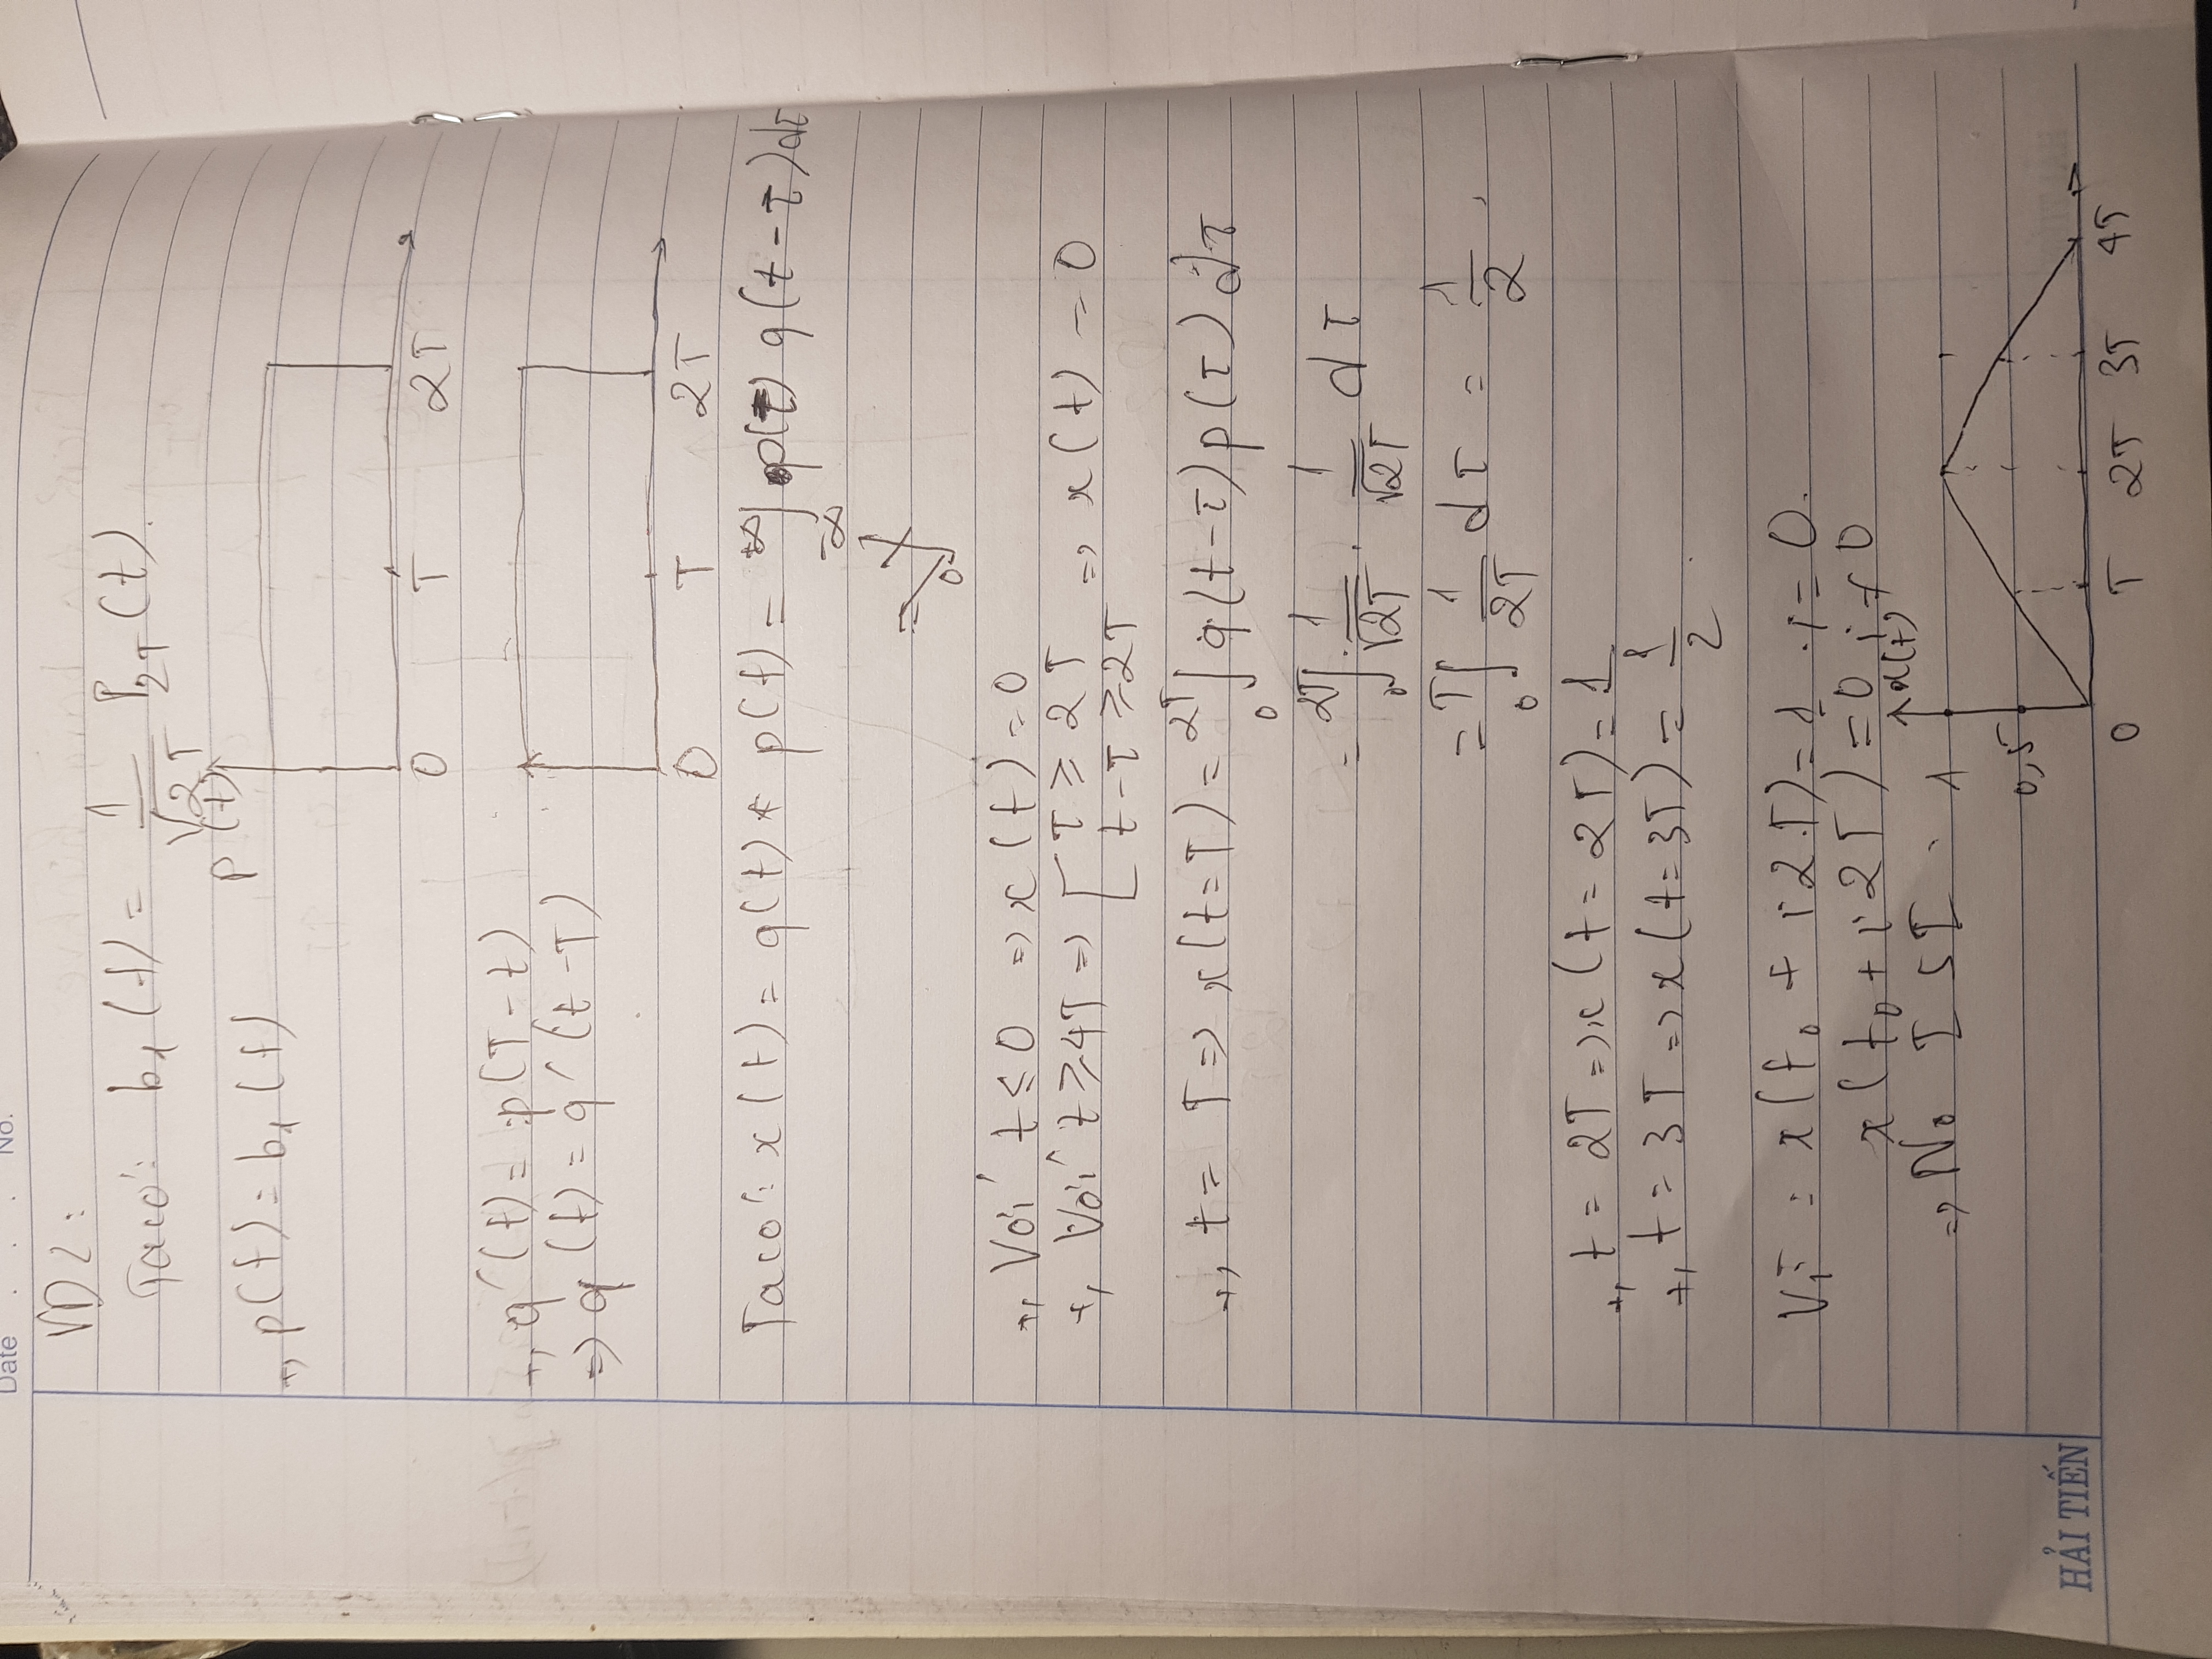 Date . . . No.
VD2:
Ta có: b₁(t) = 1/√2T P₂T(t).
+, p(t) = b₁(t)
p(t)
0 T 2T
+, q'(t) = p(T-t)
=> q(t) = q'(t-T)
0 T 2T
Ta có: x(t) = q(t) * p(t) = +∞∫-∞ p(τ) q(t-τ)dτ
+, Với t ≤ 0 => x(t) = 0
+, Với t ≥ 4T => [ τ ≥ 2T
t-τ ≥ 2T => x(t) = 0
+, t = T => x(t=T) = 2T∫0 q(t-τ) p(τ) dτ
= 2T∫0 1/√2T . 1/√2T dτ
= T∫0 1/2T dτ = 1/2 .
+, t = 2T => x(t=2T) = 1
+, t = 3T => x(t=3T) = 1/2 .
Vì : x(t₀ + i2T) = 1 . i = 0.
x(t₀ + i2T) = 0 i ≠ 0
=> No ISI .
x(t)
1
0,5
0 T 2T 3T 4T
HẢI TIẾN